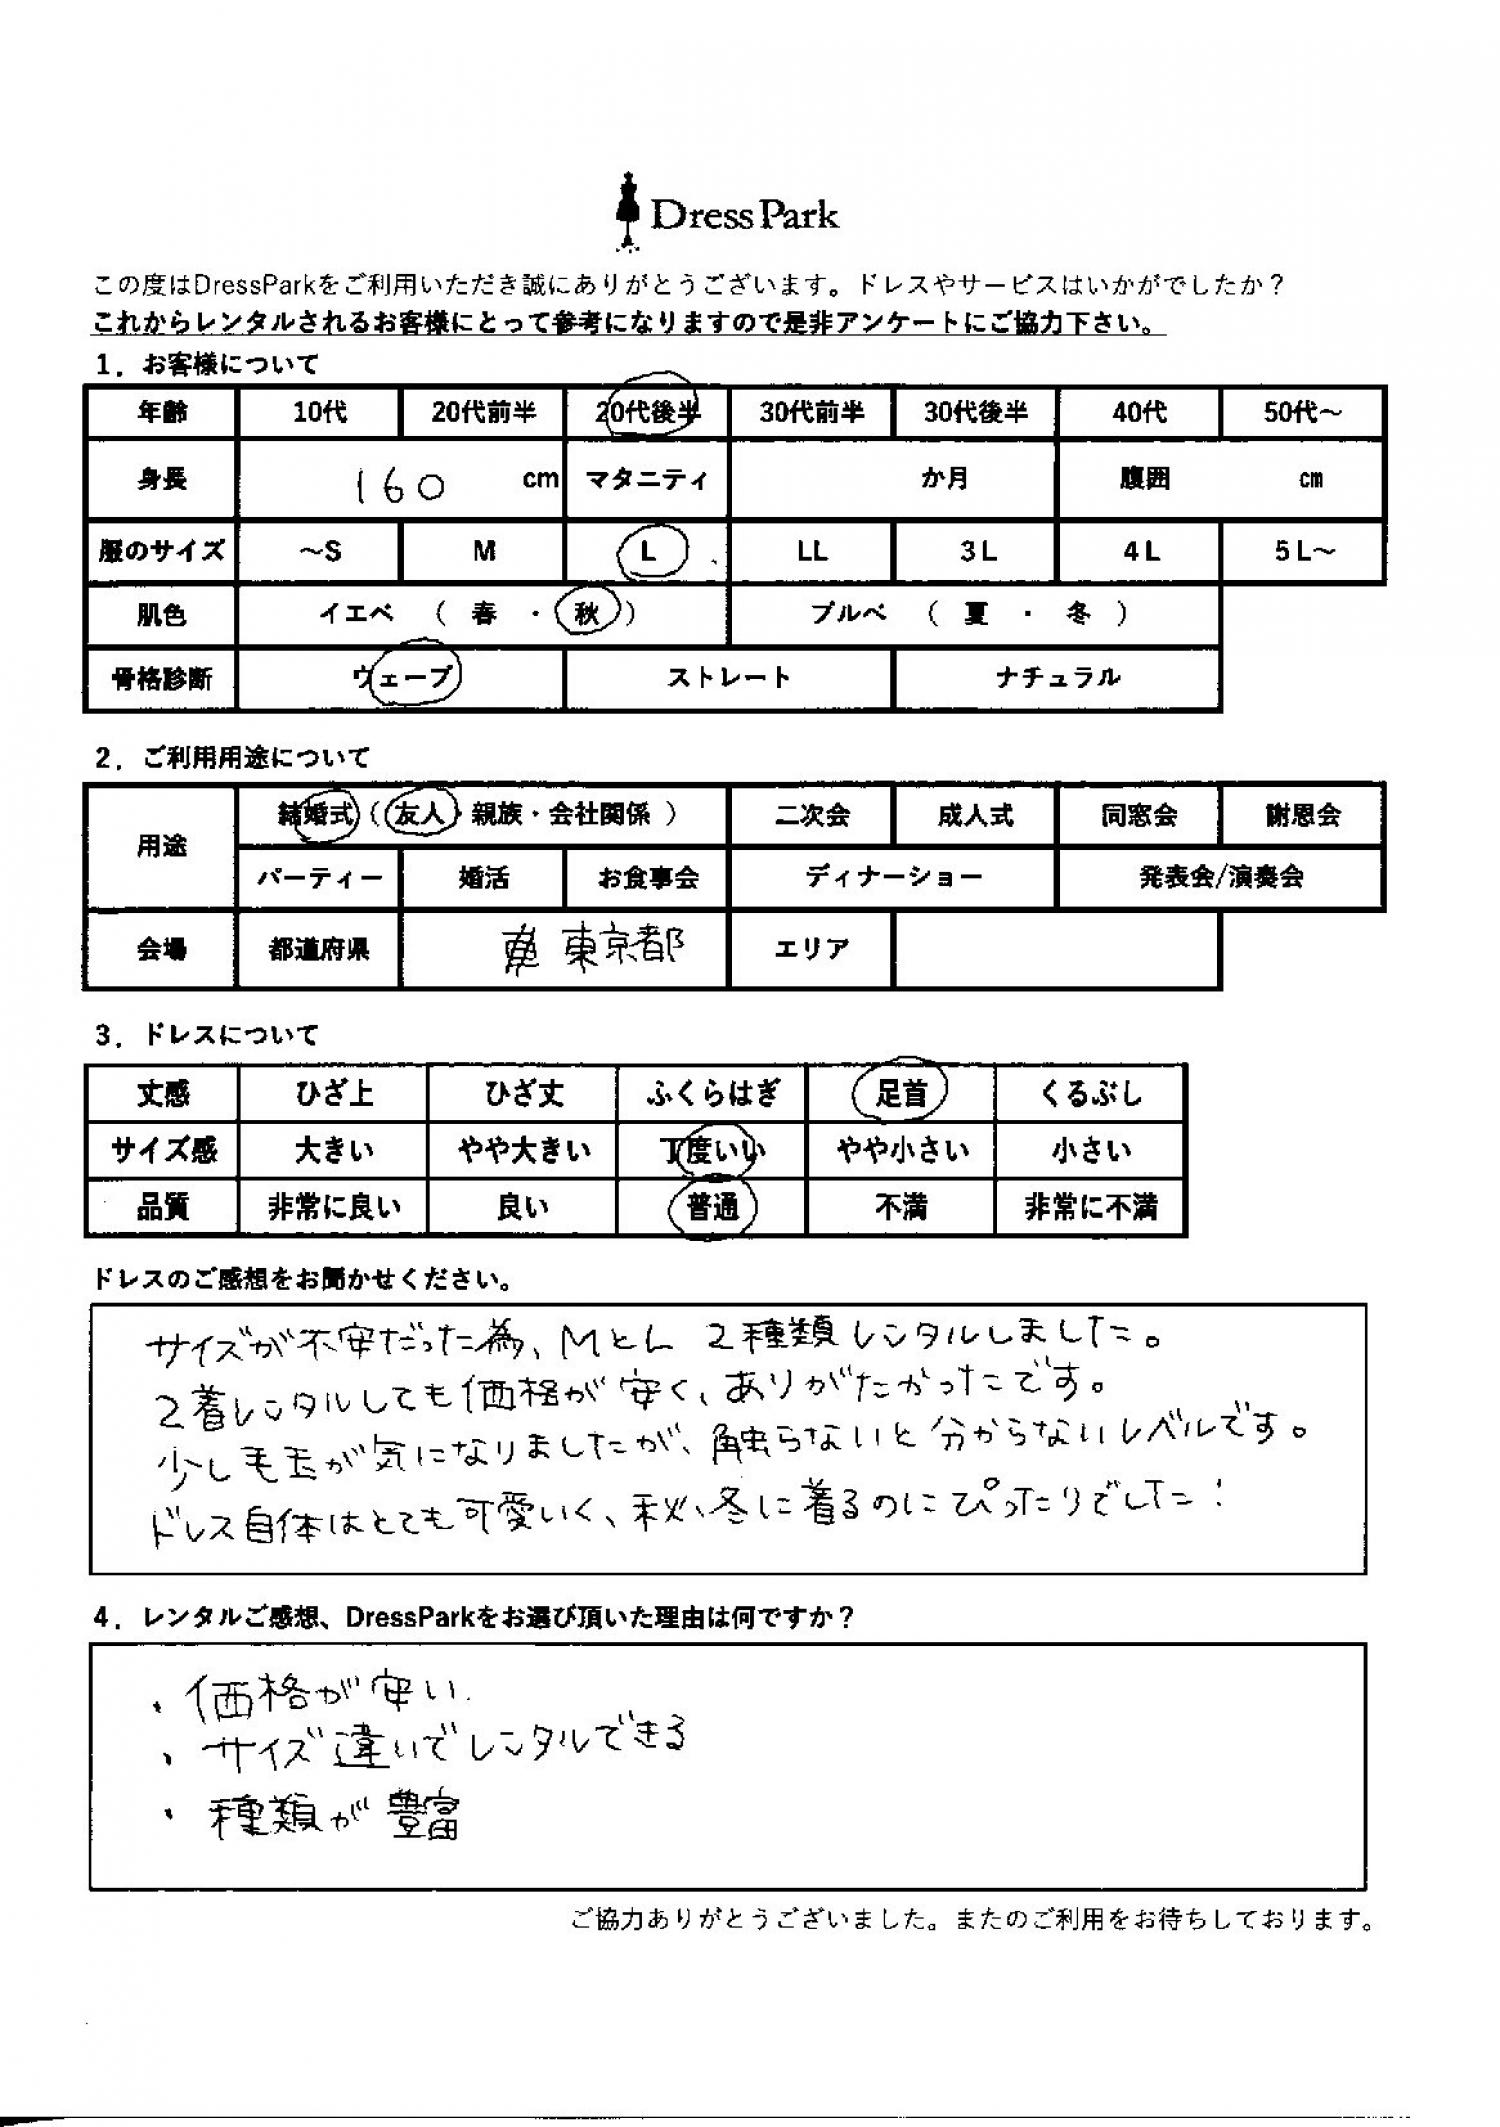 DressPark
この度はDressParkをご利用いただき誠にありがとうございます。ドレスやサービスはいかがでしたか？
これからレンタルされるお客様にとって参考になりますので是非アンケートにご協力下さい。
1．お客様について
年齢 10代 20代前半 20代後半 30代前半 30代後半 40代 50代～
身長 160 cm マタニティ か月 腹囲 cm
服のサイズ ～S M L LL 3L 4L 5L～
肌色 イエベ （ 春 ・ 秋 ） ブルベ （ 夏 ・ 冬 ）
骨格診断 ウェーブ ストレート ナチュラル
2．ご利用用途について
用途 結婚式（ 友人・親族・会社関係 ） 二次会 成人式 同窓会 謝恩会
パーティー 婚活 お食事会 ディナーショー 発表会/演奏会
会場 都道府県 東京都 エリア
3．ドレスについて
丈感 ひざ上 ひざ丈 ふくらはぎ 足首 くるぶし
サイズ感 大きい やや大きい 丁度いい やや小さい 小さい
品質 非常に良い 良い 普通 不満 非常に不満
ドレスのご感想をお聞かせください。
サイズが不安だった為、MとL 2種類レンタルしました。
2着レンタルしても価格が安く、ありがたかったです。
少し毛玉が気になりましたが、触らないと分からないレベルです。
ドレス自体はとても可愛いく、秋、冬に着るのにぴったりでした！
4．レンタルご感想、DressParkをお選び頂いた理由は何ですか？
・価格が安い
・サイズ違いでレンタルできる
・種類が豊富
ご協力ありがとうございました。またのご利用をお待ちしております。